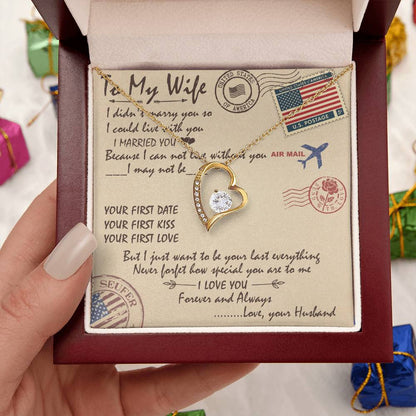 To My Wife
UNITED STATES
OF AMERICA
U.S. POSTAGE
I didn't marry you so
I could live with you
I MARRIED YOU
Because I can not live without you
AIR MAIL
____I may not be__
YOUR FIRST DATE
YOUR FIRST KISS
YOUR FIRST LOVE
But I just want to be your last everything
Never forget how special you are to me
I LOVE YOU
Forever and Always
..........Love, your Husband